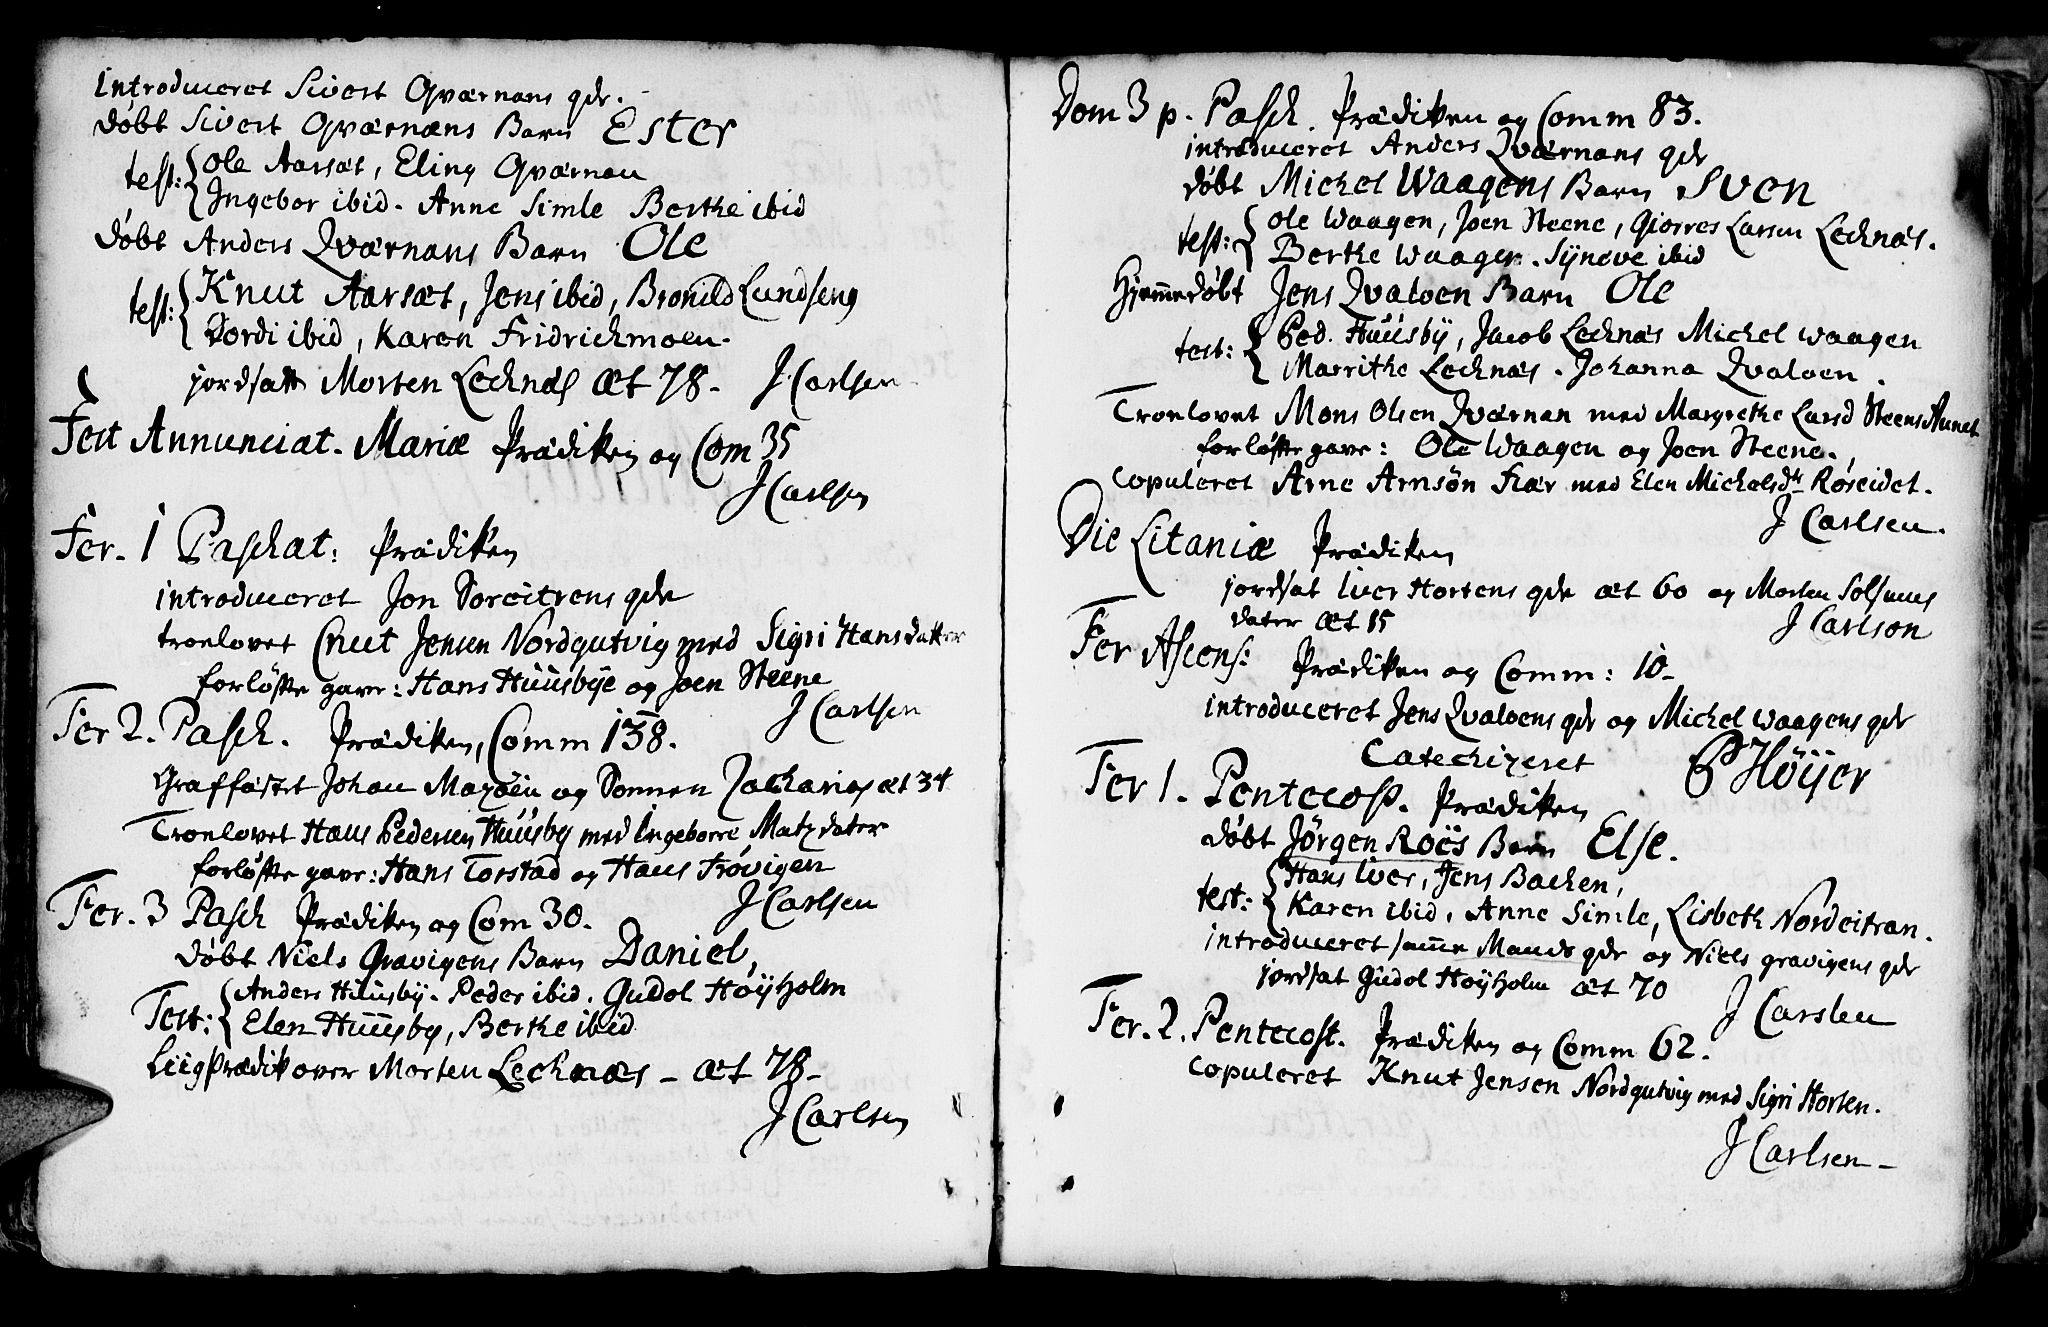 introduceret Sivert Qværnæns qde.
døbt Sivert Qværnæns Barn Ester
test: Ole Aarsæt, Eling Qværnæn
Ingebor ibid. Anne Simle Berthe ibid
døbt Anders Qværnæns Barn Ole
test: Knut Aarsæt, Jens ibid, Bronild Lundseng
Dordi ibid, Karen Fridrichmoen.
jordsatt Morten Lechnæs æt 78. J. Carlsen.
Fest Annunciat. Mariæ Prædiken og Com 35
J Carlsen
Fer. 1 Paschat: Prædiken
introduceret Jon Soreitrens qde
troelovet Cnut Jensen Nordgutvig med Sigri Hansdatter
forløfte gave: Hans Huusbye og Joen Steene
J Carlsen
Fer 2. Pasch. Prædiken, Comm 138.
Graffæstet Johan Magøen og Sønnen Zacharias æt 34
Troelovet Hans Pedersen Huusby med Ingeborre Matzdater
forløfte gave: Hans Torstad og Hans Frøvigen
J Carlsen
Fer. 3 Pasch Prædiken og Com 30.
døbt Niels Gravigens Barn Daniel,
Test: Anders Huusby. Peder ibid. Gudol Høyholm
Elen Huusby, Berthe ibid
Liigprædik over Morten Lechnæs - æt 78-
J Carlsen
Dom 3 p. Pasch. Prædiken og Comm 83.
introduceret Anders Qværnæns qde
døbt Michel Waagens Barn Sven
test: Ole Waagen, Joen Steene, Giorres Larsen Lechnæs.
Berthe Waagen. Synove ibid
Hjemmedøbt Jens Qvaloen Barn Ole
test: Ped. Huusby, Jacob Lechnæs Michel Waagen
Marrithe Lechnæs. Johanna Qvaloen.
Troelovet Mons Olsen Qværnæn med Margrethe Larsd Steens Aunet
forløfte gave: Ole Waagen og Joen Steene.
Copuleret Arne Arnsøn Flær med Elen Michelsdr Røreidet.
J Carlsen.
Die Litaniæ Prædiken
jordsat Iver Hortens qde æt 60 og Morten Solsems
dater æt 15
J Carlson
Fer Ascens: Prædiken og Comm: 10-
introduceret Jens Qvaloens qde og Michel Waagens qde
Catechizeret P Høyer
Fer 1. Pentecost. Prædiken
døbt Jørgen Roës Barn Else.
test: Hans Iver, Jens Bachen,
Karen ibid, Anne Simle, Lisbeth Nordeitran.
introduceret samme Mands qde og Niels gravigens qde
jordsat Gudol Høyholm æt 70
J Carslen
Fer. 2. Pentecost. Prædiken og Comm 62.
Copuleret Knut Jensen Nordgutvig med Sigri Horten.
J Carlsen-